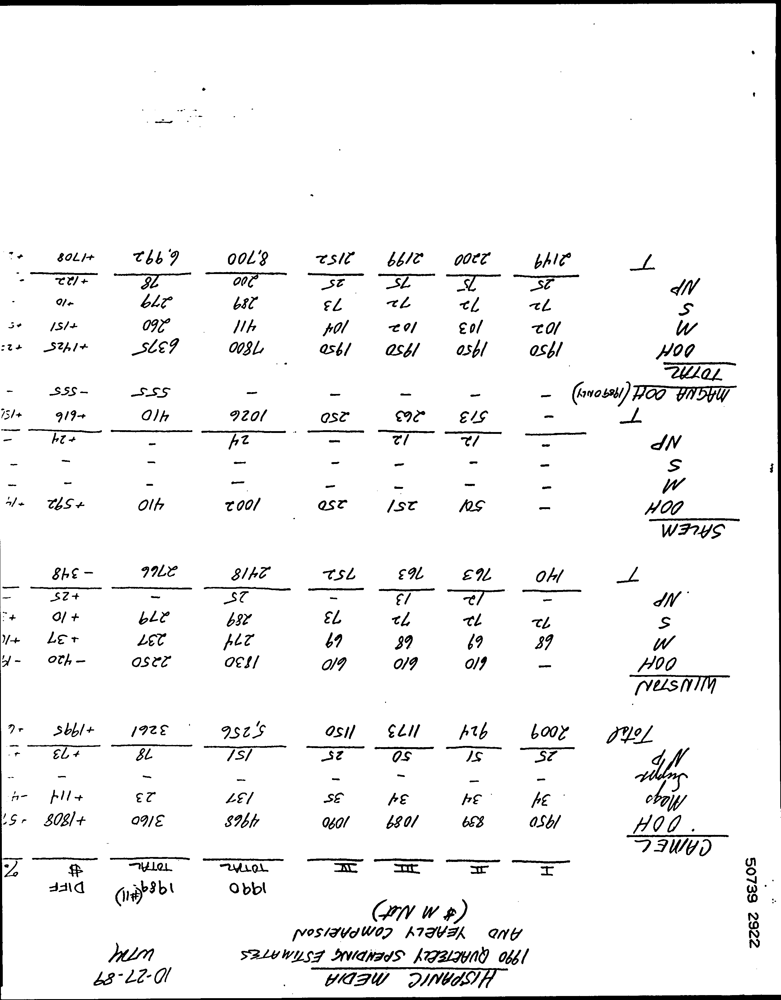 10-27-89
WTM
HISPANIC MEDIA
1990 QUARTERLY SPENDING ESTIMATES
AND YEARLY COMPARISON
($ M Net)
I II III IV 1990 TOTAL 1989 (#11) TOTAL DIFF $ %
CAMEL
OOH 1950 839 1089 1090 4968 3160 +1808
Mags 34 34 34 35 137 23 +114
- - - - - - -
NP 25 51 50 25 151 78 +73
Total 2009 924 1173 1150 5,256 3261 +1995
WINSTON
OOH - 610 610 610 1830 2250 -420
M 68 69 68 69 274 237 +37
S 72 72 72 73 289 279 +10
NP - 12 13 - 25 - +25
T 140 763 763 752 2418 2766 -348
SALEM
OOH - 501 251 250 1002 410 +592
M - - - - - - - -
S - - - - - - - -
NP - 12 12 - 24 - +24 -
T - 513 263 250 1026 410 +616
MAGNA OOH (1989 ONLY) - - - - - 555 -555 -
TOTAL
OOH 1950 1950 1950 1950 7800 6375 +1425
M 102 103 102 104 411 260 +151
S 72 72 72 73 289 279 +10
NP 25 75 75 25 200 78 +122
T 2149 2200 2199 2152 8,700 6,992 +1708
50739 2922